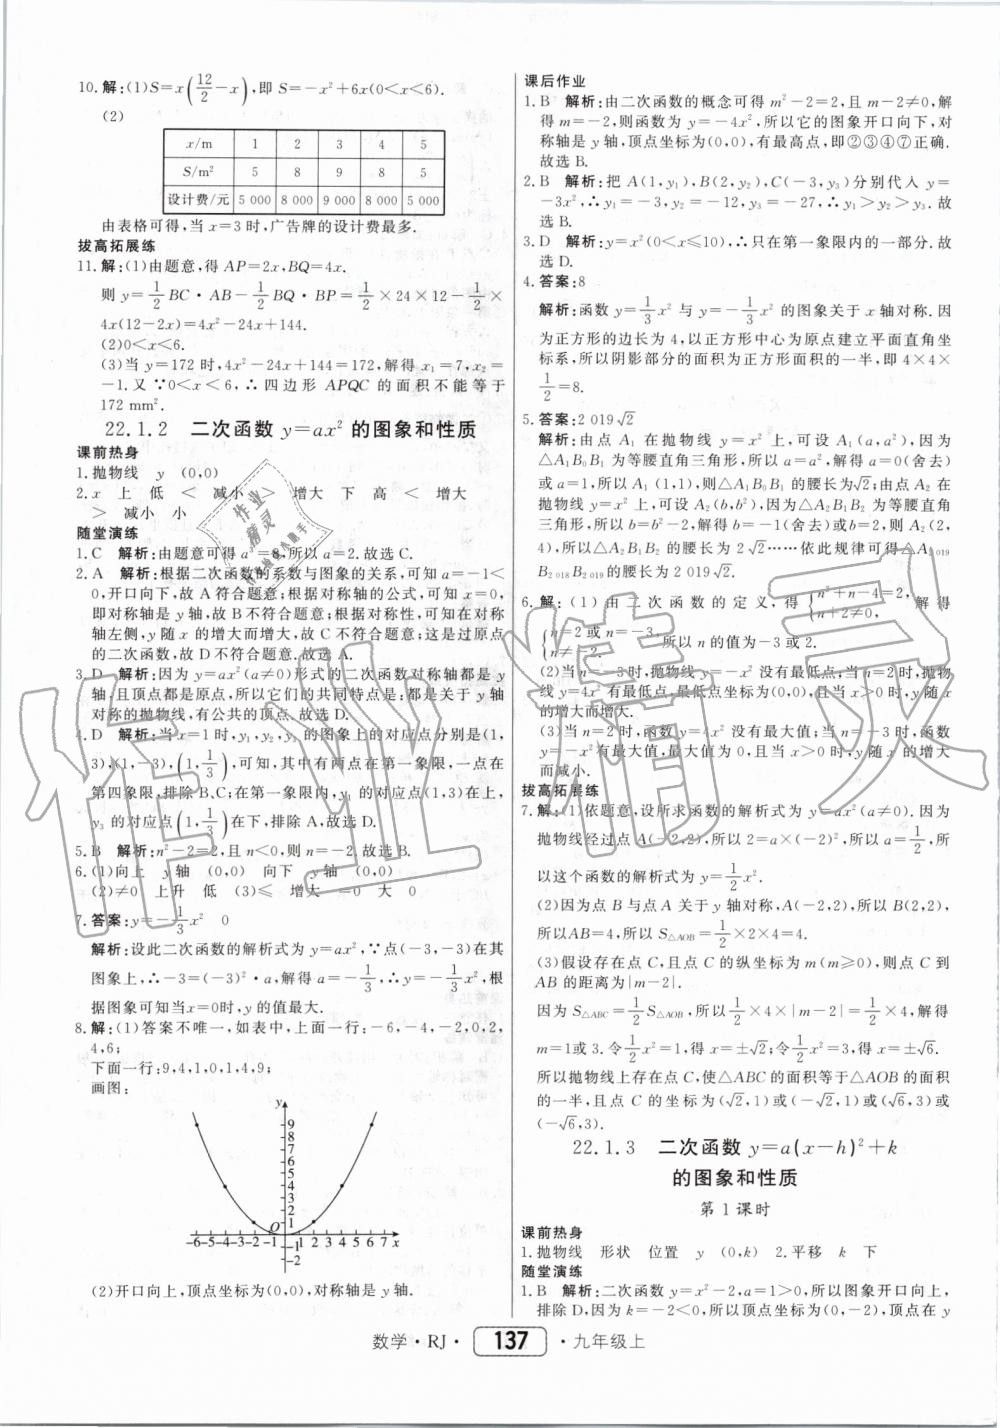 10. 解:(1)S=x(12/2-x),即 S=-x²+6x(0<x<6).
(2)
x/m 1 2 3 4 5
S/m² 5 8 9 8 5
设计费/元 5 000 8 000 9 000 8 000 5 000
由表格可得,当 x=3 时,广告牌的设计费最多.
拔高拓展练
11. 解:(1)由题意,得 AP=2x,BQ=4x.
则 y=1/2 BC·AB-1/2 BQ·BP=1/2×24×12-1/2×
4x(12-2x)=4x²-24x+144.
(2)0<x<6.
(3)当 y=172 时,4x²-24x+144=172,解得 x₁=7,x₂=
-1.又∵0<x<6,∴四边形 APQC 的面积不能等于
172 mm².
22.1.2 二次函数 y=ax² 的图象和性质
课前热身
1. 抛物线 y (0,0)
2. x 上 低 < 减小 > 增大 下 高 < 增大
> 减小 小
随堂演练
1. C 解析:由题意可得 a²=4,所以 a=2.故选 C.
2. A 解析:根据二次函数的系数与图象的关系,可知 a=-1<
0,开口向下,故 A 符合题意;根据对称轴的公式,可知 x=0,
即对称轴是 y 轴,故 B 不符合题意;根据对称性,可知在对称
轴左侧,y 随 x 的增大而增大,故 C 不符合题意;这是过原点
的二次函数,故 D 不符合题意.故选 A.
3. D 解析:因为 y=ax²(a≠0)形式的二次函数对称轴都是 y
轴,且顶点都是原点,所以它们的共同特点是:都是关于 y 轴
对称的抛物线,有公共的顶点.故选 D.
4. D 解析:当 x=1 时,y₁,y₂,y₃ 的图象上的对应点分别是(1,
3),(1,-3),(1,1/3),可知,其中有两点在第一象限,一点在
第四象限,排除 B,C;在第一象限内,y₁ 的对应点(1,3)在上,
y₃ 的对应点(1,1/3)在下,排除 A,故选 D.
5. B 解析:n²-2=2,且 n<0,则 n=-2.故选 B.
6. (1)向上 y 轴 (0,0) 向下 y 轴 (0,0)
(2)≠0 上升 低 (3)≤ 增大 =0 大 0
7. 答案:y=-1/3 x² 0
解析:设此二次函数的解析式为 y=ax²,∵点(-3,-3)在其
图象上,∴-3=(-3)²·a,解得 a=-1/3,∴y=-1/3 x²,根
据图象可知当 x=0时,y 的值最大.
8. 解:(1)答案不唯一,如表中,上面一行:-6,-4,-2,0,2,
4,6;
下面一行:9,4,1,0,1,4,9;
画图:
y
9
8
7
6
5
4
3
2
1
O
-6 -5 -4 -3 -2 -1 1 2 3 4 5 6 7 x
-1
-2
(2)开口向上,顶点坐标为(0,0),对称轴为 y 轴.
课后作业
1. B 解析:由二次函数的概念可得 m²-2=2,且 m-2≠0,解
得 m=-2,则函数为 y=-4x²,所以它的图象开口向下,对
称轴是 y 轴,顶点坐标为(0,0),有最高点,即②③④⑦正确.
故选 B.
2. B 解析:把 A(1,y₁),B(2,y₂),C(-3,y₃)分别代入 y=
-3x²,∴y₁=-3,y₂=-12,y₃=-27,∴y₁>y₂>y₃.故
选 B.
3. D 解析:∵y=x²(0<x≤10),∴只在第一象限内的一部分.故
选 D.
4. 答案:8
解析:函数 y=1/3 x² 与 y=-1/3 x² 的图象关于 x 轴对称.因
为正方形的边长为 4,以正方形中心为原点建立平面直角坐
标系,所以阴影部分的面积为正方形面积的一半,即 4×4×
1/2=8.
5. 答案:2 019√2
解析:由点 A₁ 在抛物线 y=x² 上,可设 A₁(a,a²),因为
△A₁B₀B₁ 为等腰直角三角形,所以 a=a²,解得 a=0(舍去)
或 a=1,所以 A₁(1,1),则△A₁B₀B₁ 的腰长为√2;由点 A₂ 在
抛物线 y=x² 上,可设 A₂(b,b²),因为△A₂B₁B₂ 为等腰直角
三角形,所以 b=b²-2,解得 b=-1(舍去)或b=2,则 A₂(2,
4),所以△A₂B₁B₂ 的腰长为 2√2……依此规律可得△A₂ ₀₁₉
B₂ ₀₁₈B₂ ₀₁₉的腰长为 2 019√2.
6. 解:(1)由二次函数的定义,得{n²+n-4=2, n+2≠0, 解得
{n=2 或 n=-3, n≠-2. 所以 n 的值为-3 或 2.
(2)当 n=-3时,抛物线 y=-x² 没有最低点;当 n=2 时,抛物
线 y=4x² 有最低点,最低点坐标为(0,0),且当 x>0 时,y 随 x
的增大而增大.
(3)当 n=2 时,函数 y=4x² 没有最大值;当 n=-3 时,函数
y=-x² 有最大值,最大值为 0,且当 x>0 时,y 随 x 的增大
而减小.
拔高拓展练
7. 解:(1)依题意,设所求函数的解析式为 y=ax²(a≠0).因为
抛物线经过点 A(-2,2),所以 2=a×(-2)²,所以 a=1/2,所
以这个函数的解析式为 y=1/2 x².
(2)因为点 B 与点 A 关于 y 轴对称,A(-2,2),所以 B(2,2),
所以AB=4,所以 S△AOB=1/2×2×4=4.
(3)假设存在点 C,且点 C 的纵坐标为 m(m≥0),则点 C 到
AB 的距离为|m-2|.
因为 S△ABC=1/2 S△AOB,所以1/2×4×|m-2|=1/2×4,解得
m=1或 3.令1/2 x²=1,得 x=±√2;令1/2 x²=3,得 x=±√6.
所以抛物线上存在点 C,使△ABC 的面积等于△AOB 的面积
的一半,且点 C 的坐标为(√2,1)或(-√2,1)或(√6,3)或
(-√6,3).
22.1.3 二次函数 y=a(x-h)²+k
的图象和性质
第 1 课时
课前热身
1. 抛物线 形状 位置 y (0,k) 2. 平移 k 下
随堂演练
1. B 解析:二次函数 y=x²-2,a=1>0,所以图象开口向上,
排除 D,因为 k=-2<0,所以顶点坐标为(0,-2),顶点在 y
数学·RJ· 137 ·九年级上
作业精灵